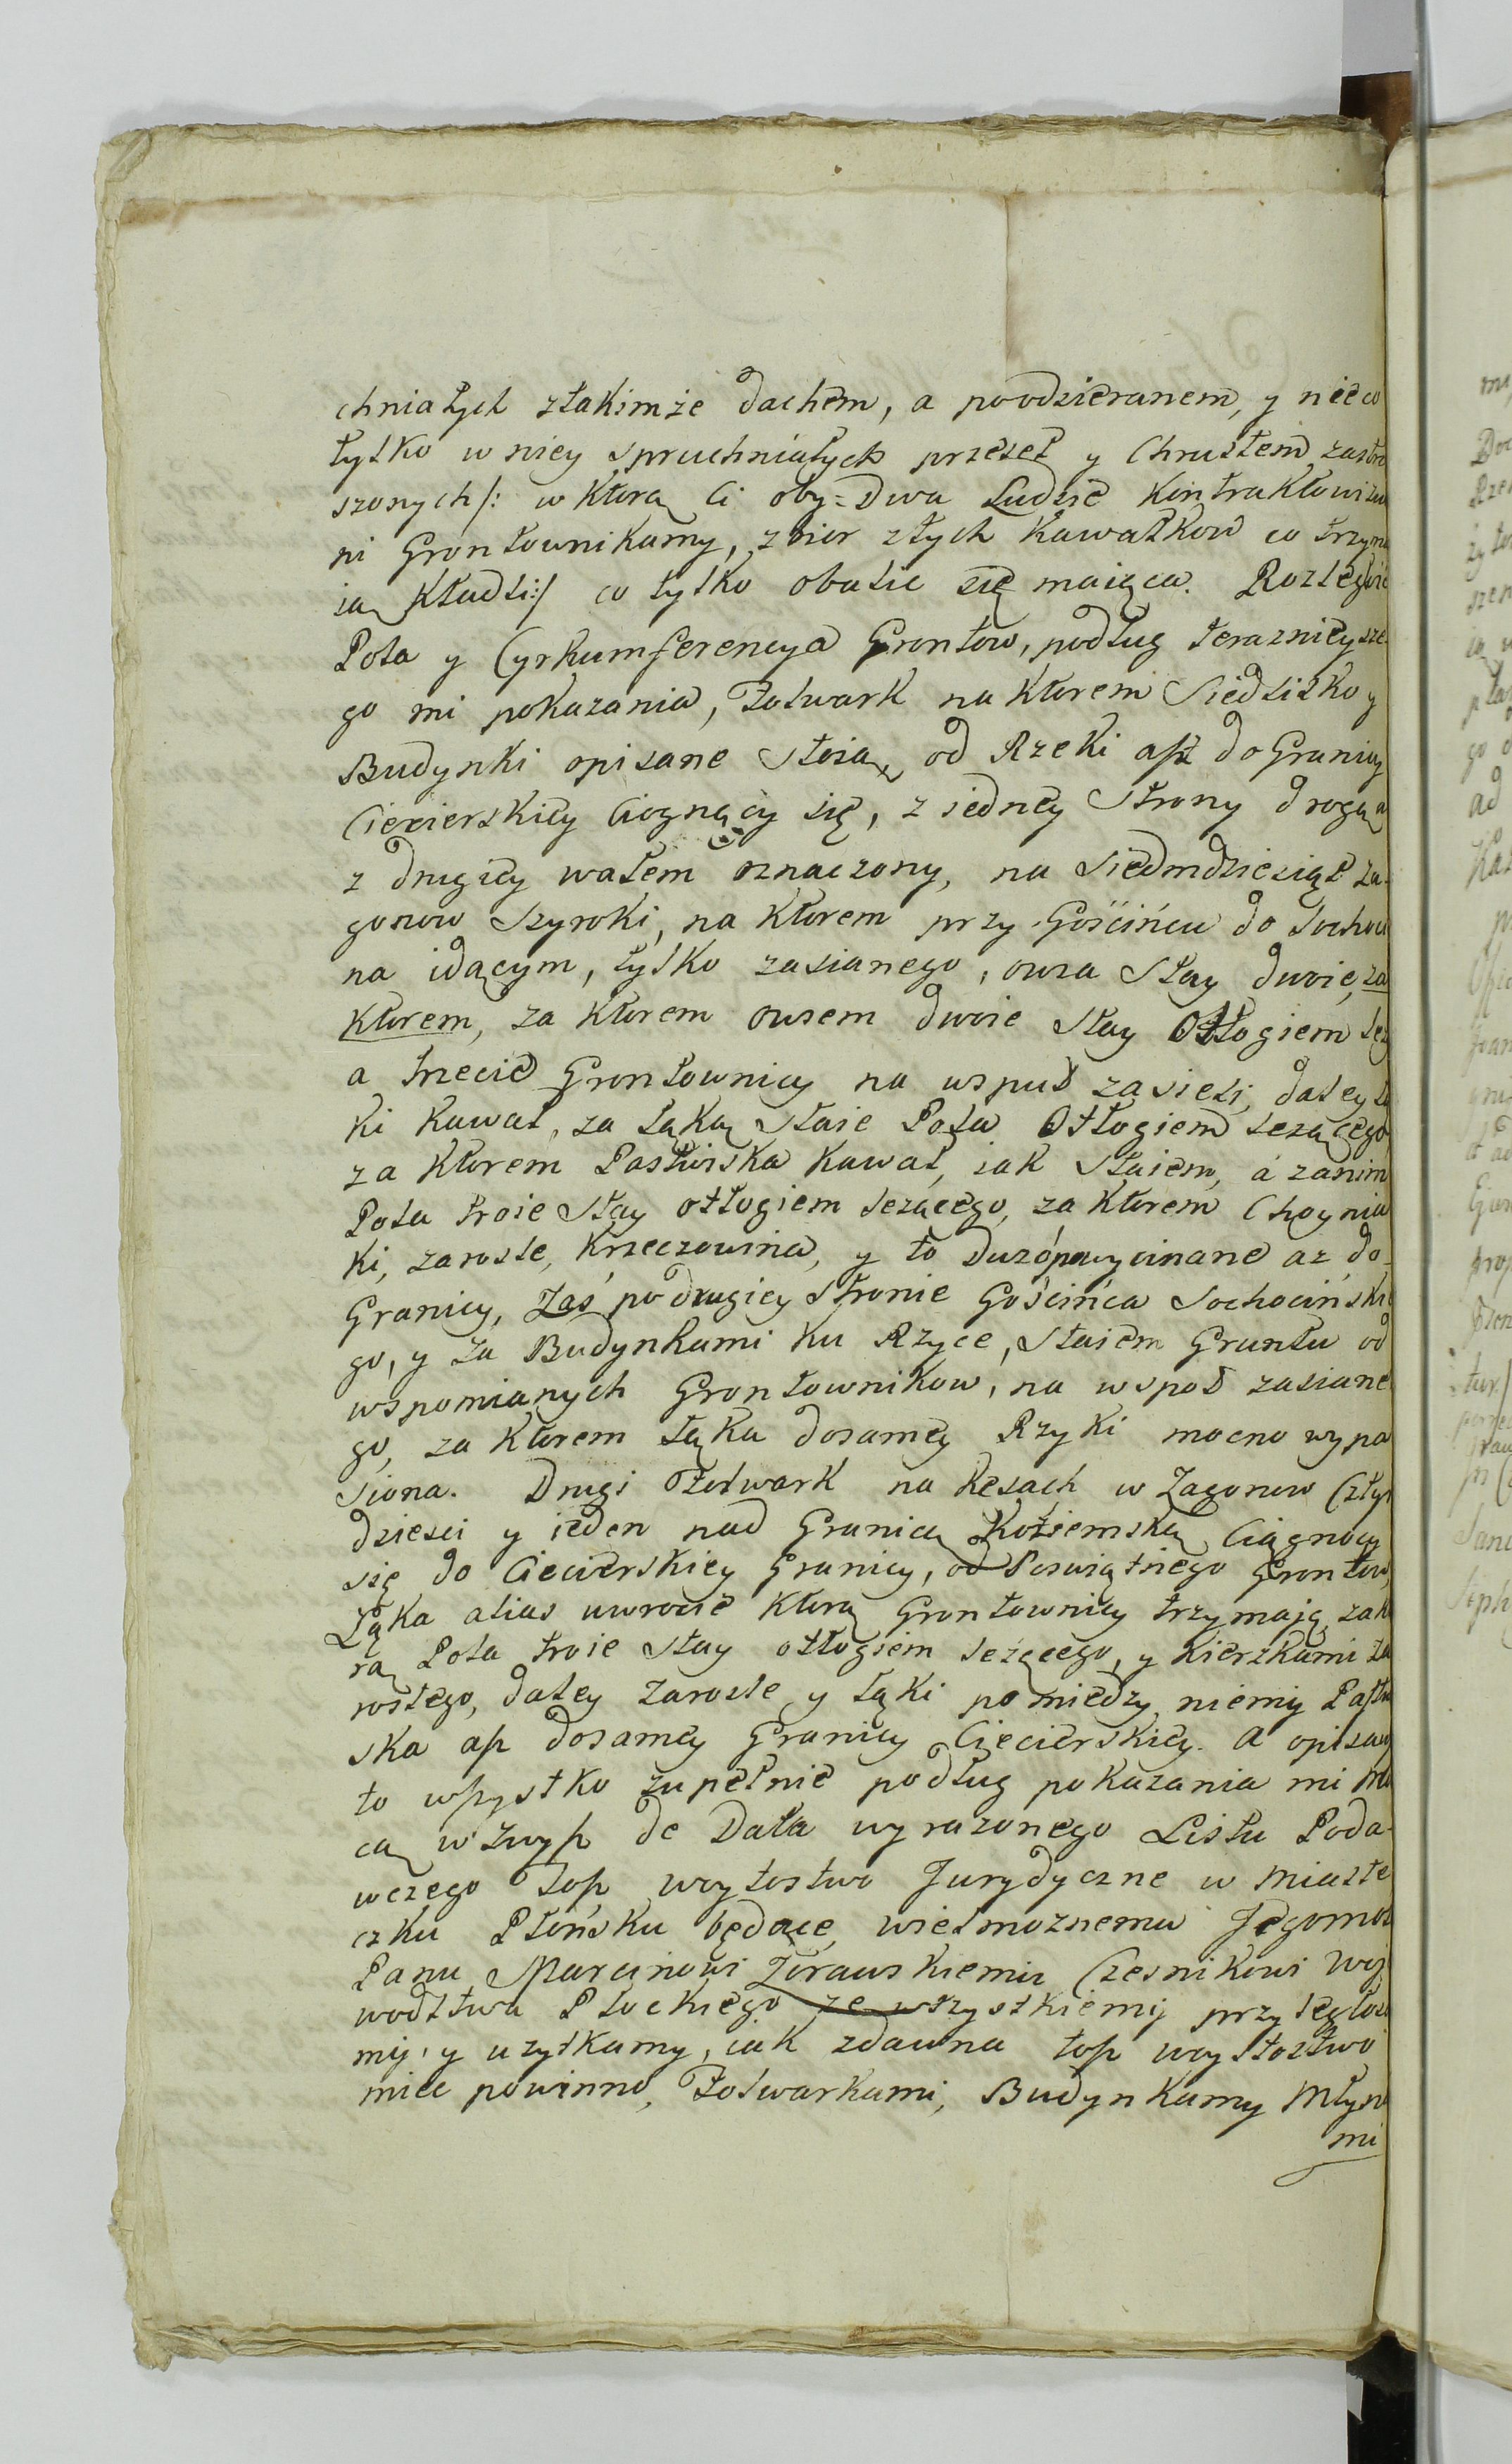 chniałych ztakimże dachem, a poodzieranem, y nieco
tylko w niey spruchniałych przeseł y Chrustem
szonych/: w Ktorą Ci oby=Dwa Ludzie Kontraktowi
ni Grontownikamy, zbior ztych Kawałkow co trzyma
ią Kładli:/ co tylko obalic się maięca. Rozległość
Pola y Cyrkumferencya Grontow, podług teraznieysze-
go mi pokazania, Folwark na Ktorem Siedlisko y
Budynki opisane Stoią, od Rzeki asz do Granicy
Ciecierskiey Ciognęcy się, z iedney Strony drogą a
z drugiey wałem oznaczony, na Siedmdziesiąt za-
gonow Szyroki, na Ktorem przy Gościńcu do Sochoci
na idącym, tylko zasianego, owsa Stay dwoie, za
Ktorem, za Ktorem owsem dwoie Stay Odłogiem leży
a trzecie Grontownicy na wspuł zasieli, daley
ki Kawał, za Łąką Staie Pola Odłogiem lezącego,
za Ktorem Pastwiska Kawał, iak Staiem, a zanim
Pola troie Stay odłogiem lezącego, za Ktorem Choynia
ki, zarosle, Krzeczowina, y to Duzo powycinane az do
Granicy, Zaś po drugiey Stronie Gościńca Sochocińskie
go, y za Budynkami ku Rzyce, Staiem Gruntu od
wspomianych Grontownikow, na wspoł zasiane
go, za Ktorem Łąka dosamey Rzyki mocno wypa
siona. Drugi Folwark na Kesach w Zagonow Cztyr
dziesci y ieden nad Granicą Kołiemską Ciągnocy
się do Ciecierskiey Granicy, od Poswiątnego Grontow,
Łąka alias uwrocie Ktorą Grontownicy trzymaią, zakto
rą Pola troie Stay odłogiem leżęcego, y Kierzkami za
rosłego, daley zarosle y Łąki pomiedzy niemy Pastwi
ska asz dosamey Granicy Ciecierskiey. A opisawszy
to wszystko zupełnie podług pokazania mi mo
cą wzwysz de Data wyrazonego Listu Poda-
wczego tosz woytostwo Jurydyczne w Miaste
czku Płońsku będące, wielmoznemu Jegomos
Panu Marcinowi Zorawskiemu Czesnikowi Woj
wodztwa Płockiego ze wszystkiemy przyległos
my, y uzytkamy, iak zdawna tosz woytostwo
miec powinno, Folwarkami, Budynkamy Młyna
mi